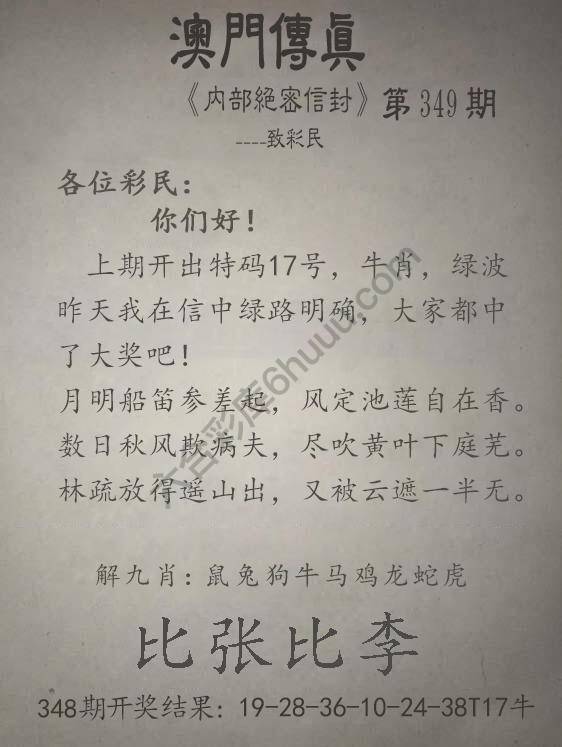 澳門傳眞
《内部絕密信封》第349期
----致彩民
各位彩民：
你们好！
上期开出特码17号，牛肖，绿波
昨天我在信中绿路明确，大家都中
了大奖吧！
月明船笛参差起，风定池莲自在香。
数日秋风欺病夫，尽吹黄叶下庭芜。
林疏放得遥山出，又被云遮一半无。
六合彩库6huuu.com
解九肖：鼠兔狗牛马鸡龙蛇虎
比张比李
348期开奖结果：19-28-36-10-24-38T17牛